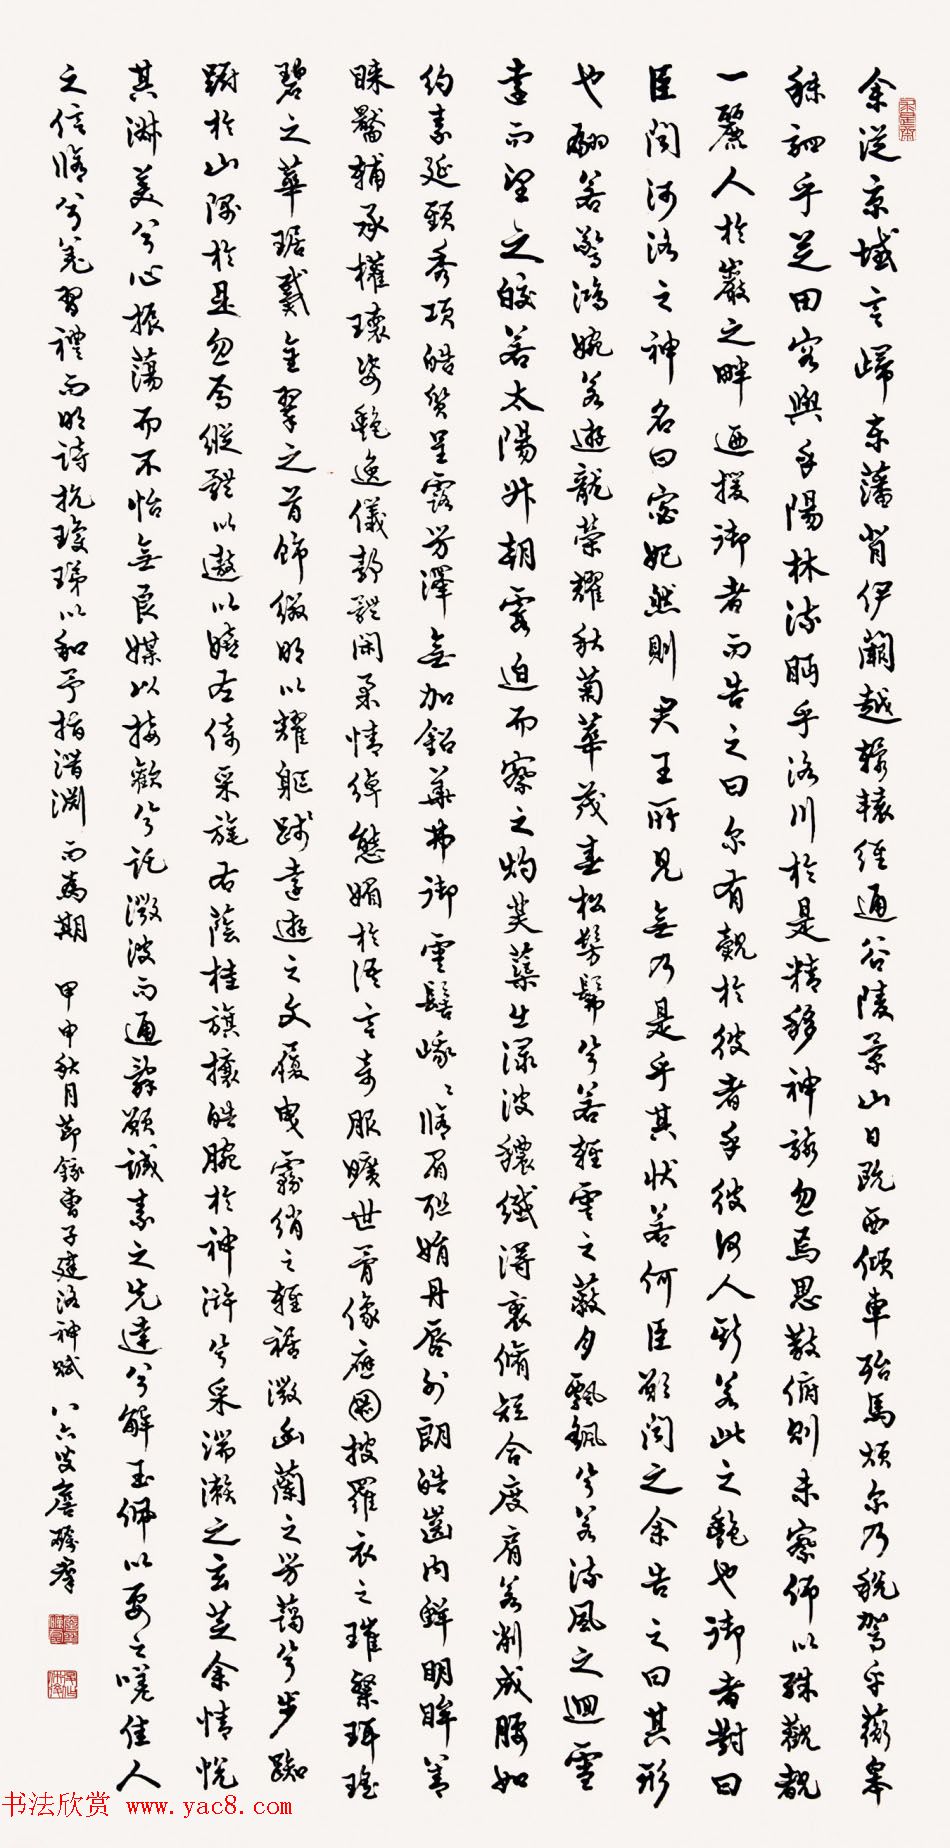 余从京域言归东藩背伊阙越轘辕经通谷陵景山日既西倾车殆马烦尔乃税驾乎蘅皋
秣驷乎芝田容與乎陽林流眄乎洛川於是精移神骇忽焉思散俯则未察仰以殊觀覩
一麗人於巖之畔迺援御者而告之曰尔有觌於彼者乎彼何人斯若此之艳也御者對曰
臣闻河洛之神名曰宓妃然則君王所見無乃是乎其状若何臣愿闻之余告之曰其形
也翩若驚鴻婉若遊龍榮耀秋菊華茂春松髣髴兮若輕雲之蔽月飄飖兮若流風之迴雪
遠而望之皎若太陽升朝霞迫而察之灼若蕖出渌波穠纖得衷脩短合度肩若削成腰如
约素延頸秀項皓質呈露芳澤無加鉛華弗御雲髻峨〻脩眉联娟丹唇外朗皓齒内鲜明眸善
睞靨輔承權瓌姿艷逸儀静體闲柔情绰態媚於语言奇服曠世骨像应图披羅衣之璀粲珥瑤
碧之華琚戴金翠之首饰缀明以耀軀践遠遊之文履曳霧绡之輕裾微幽蘭之芳蔼兮步踟
蹰於山隅於是忽焉縱體以遨以嬉左倚采旄右蔭桂旗攘皓腕於神浒兮采湍濑之玄芝余情悦
其淑美兮心振蕩而不怡無良媒以接歡兮託微波而通辭愿誠素之先達兮解玉佩以要之嗟佳人
之信脩兮羌習禮而明詩抗瓊珶以和予指潜渊而為期 甲申秋月节録曹子建洛神赋 八六叟
书法欣赏 www.yac8.com